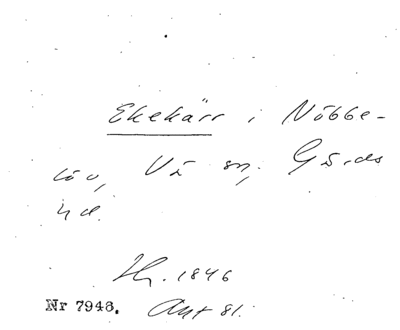 Ekekärr i Nöbbe-
löv, Vä sn, Gärds
hd.
Hr. 1846
Nr 7948. Ant 81.